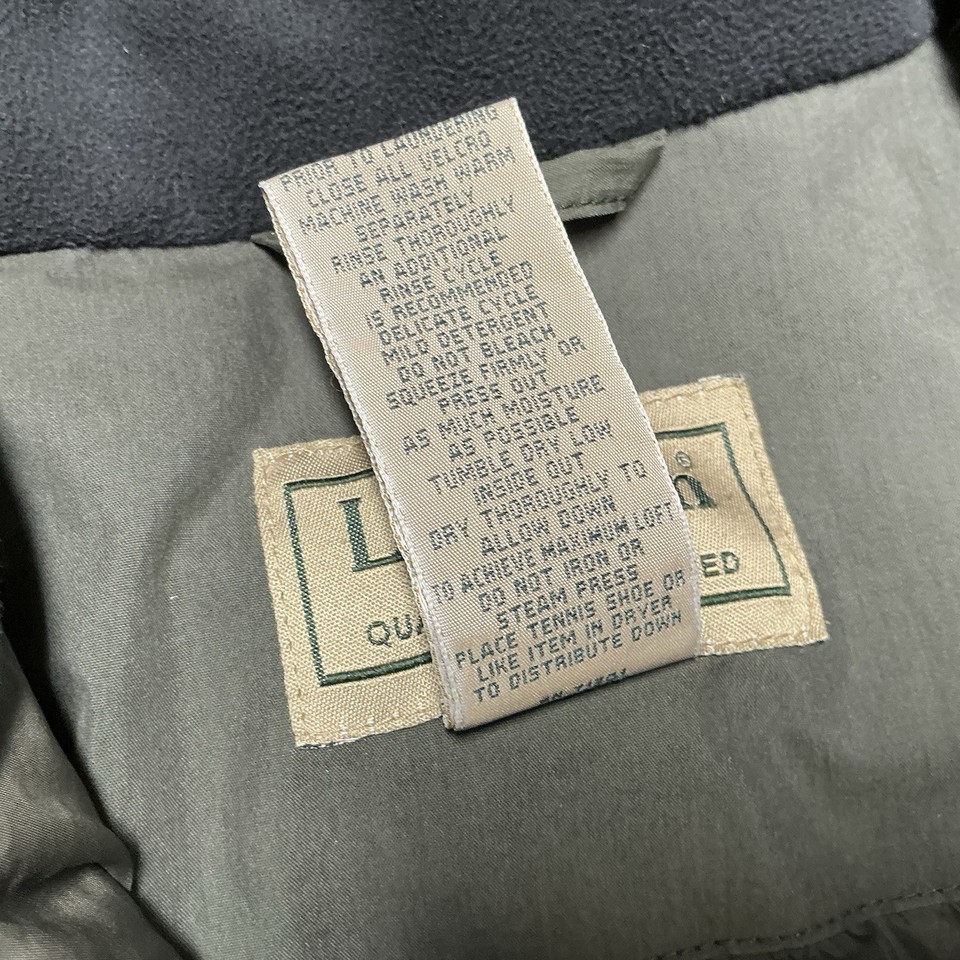 PRIOR TO LAUNDERING
CLOSE ALL VELCRO
MACHINE WASH WARM
SEPARATELY
RINSE THOROUGHLY
AN ADDITIONAL
RINSE CYCLE
IS RECOMMENDED
DELICATE CYCLE
MILD DETERGENT
DO NOT BLEACH
SQUEEZE FIRMLY OR
PRESS OUT
AS MUCH MOISTURE
AS POSSIBLE
TUMBLE DRY LOW
INSIDE OUT
DRY THOROUGHLY TO
ALLOW DOWN
TO ACHIEVE MAXIMUM LOFT
DO NOT IRON OR
STEAM PRESS
PLACE TENNIS SHOE OR
LIKE ITEM IN DRYER
TO DISTRIBUTE DOWN
L n®
QUA ED